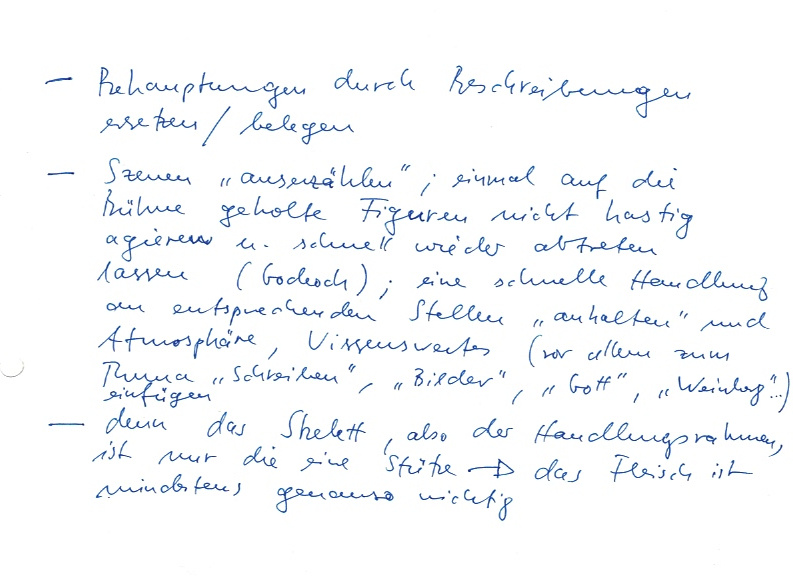 — Behauptungen durch Beschreibungen
ersetzen / belegen
— Szenen „auserzählen"; einmal auf die
Bühne geholte Figuren nicht hastig
agieren u. schnell wieder abtreten
lassen ( ); eine schnelle Handlung
an entsprechenden Stellen „anhalten" und
Atmosphäre, Wissenswertes (vor allem zum
Thema „Schreiben", „Bilder", „Gott", „Weinberg"...)
einfügen
— denn das Skelett, also der Handlungsrahmen,
ist nur die eine Stütze → das Fleisch ist
mindestens genauso wichtig